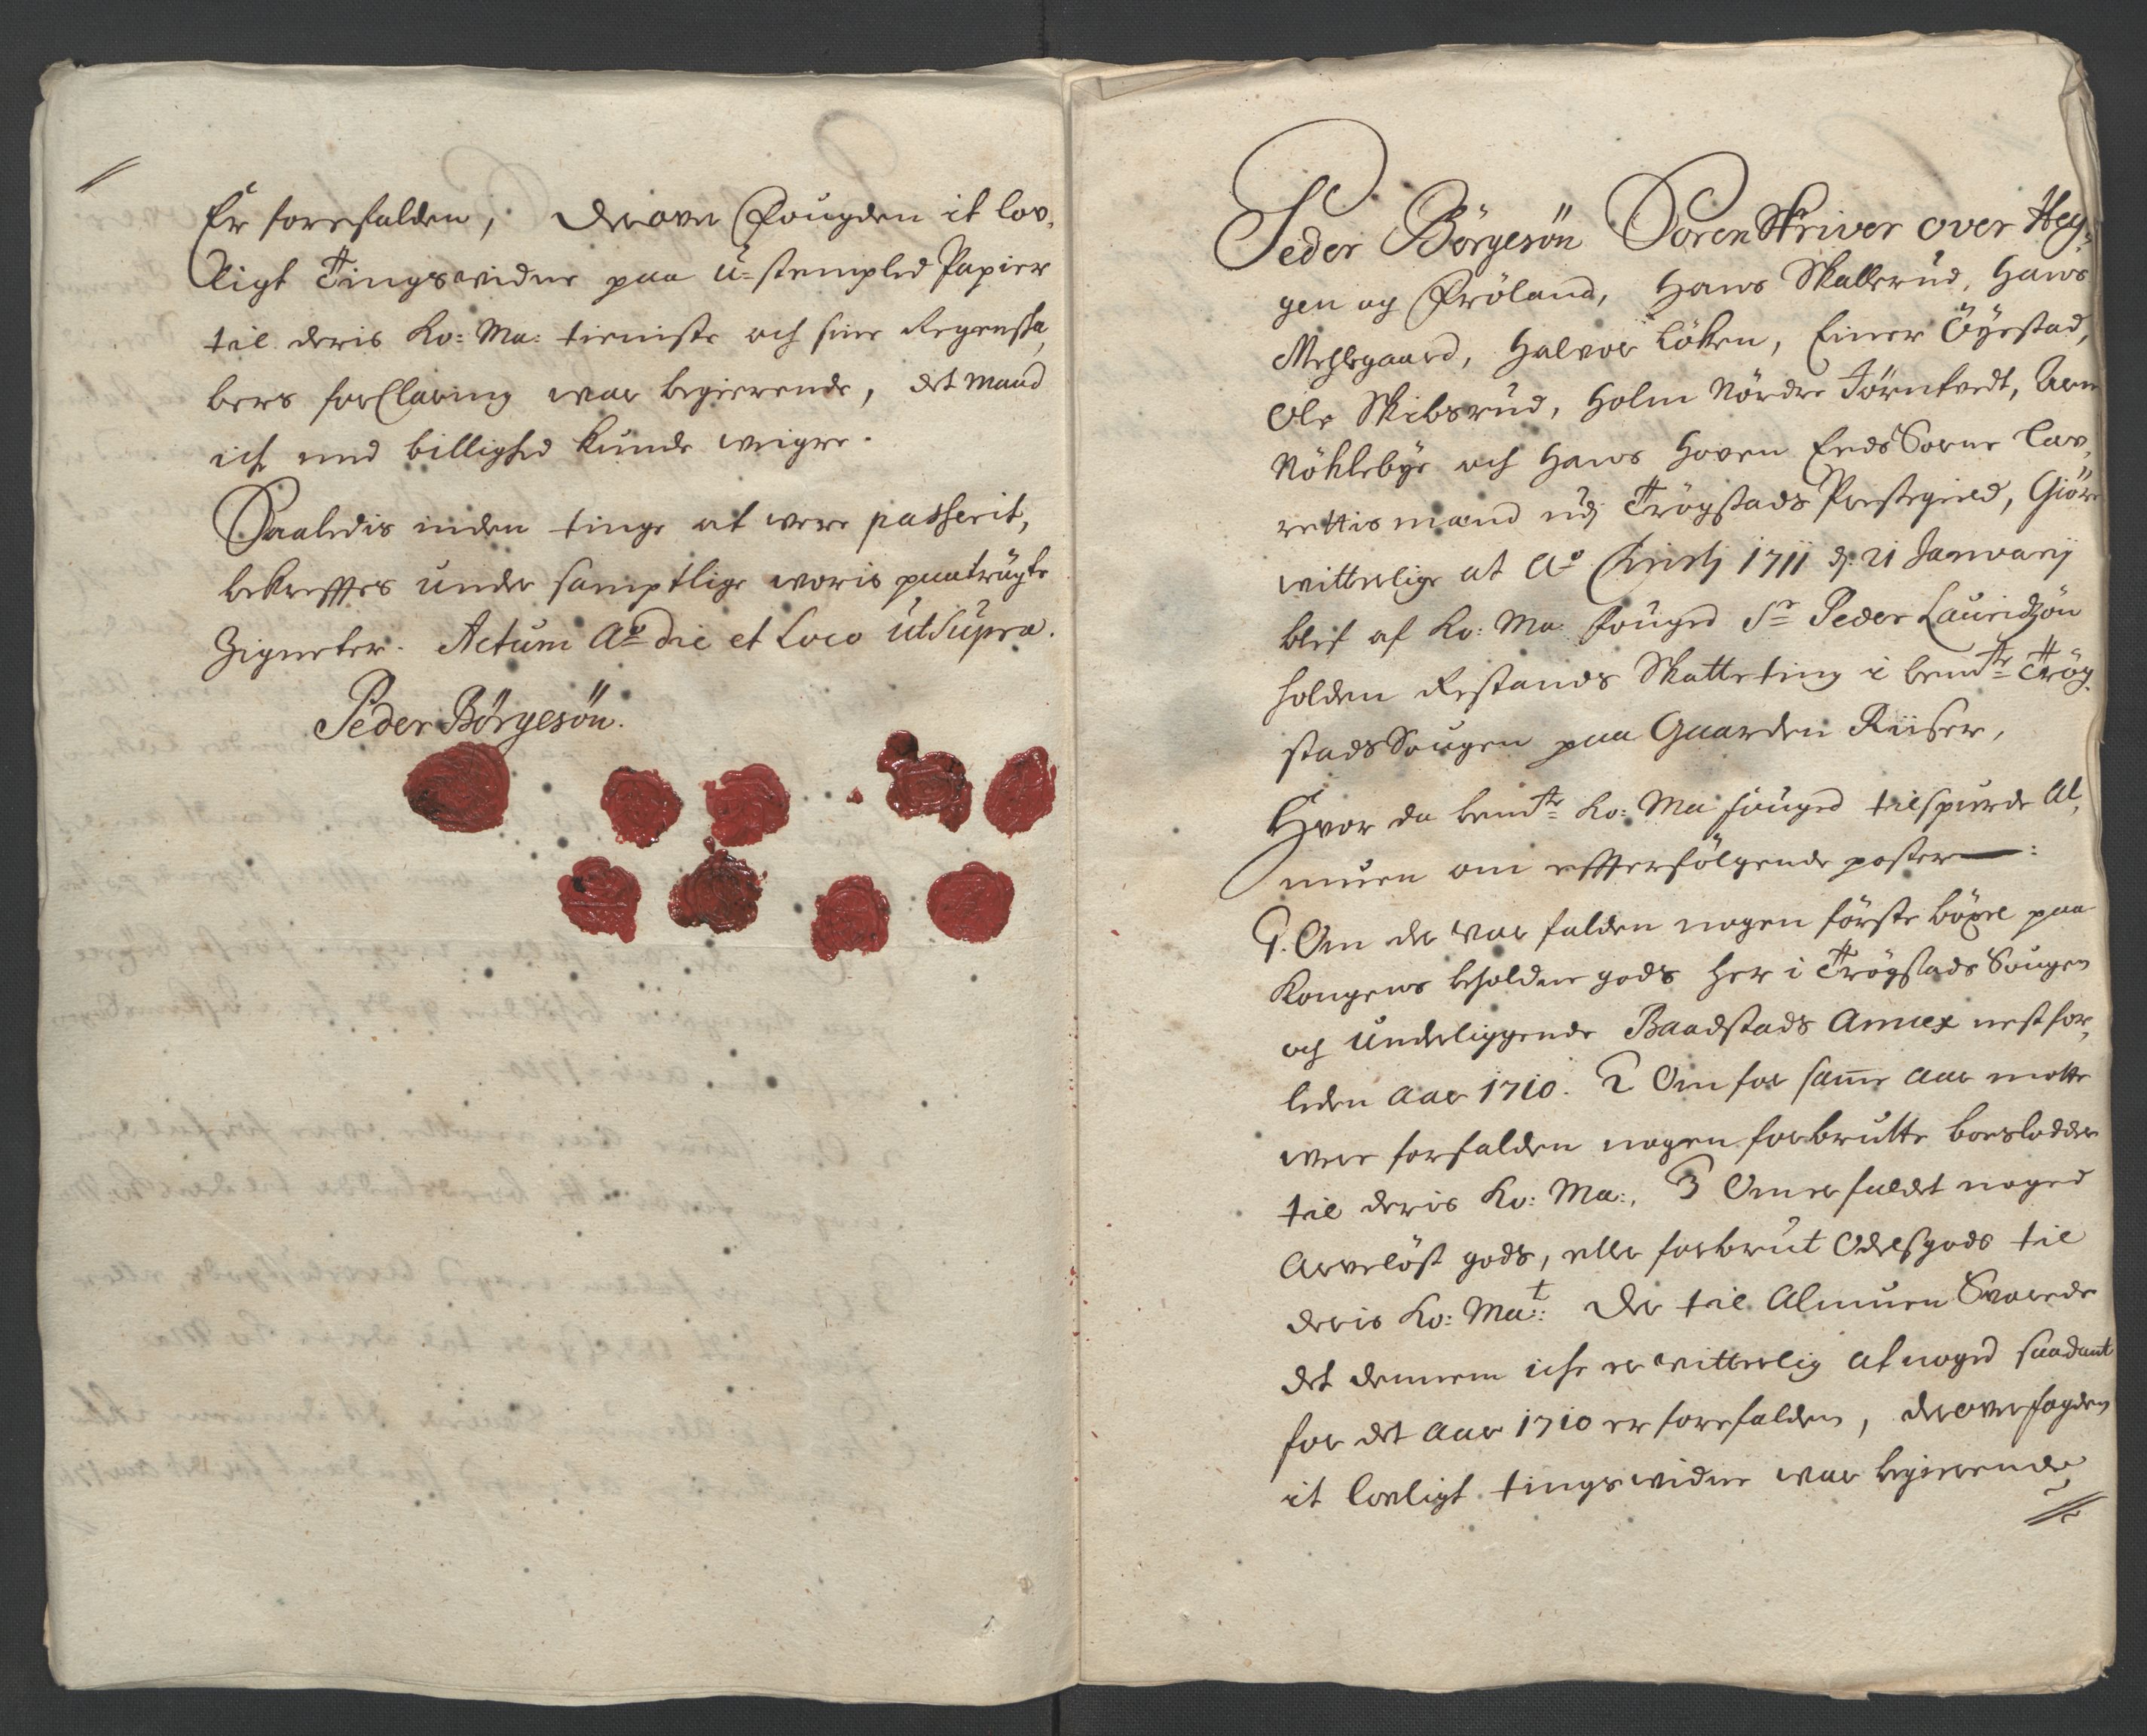 Er forefalden, derover Fougden it lov,
ligt Tingsvidne paa U=stempled Papier
til deris Ko: Ma: tieniste och sine Regenska,
bers forClaring war begierende, det mand
ich med billighed kunde weigre.
Saaledis inden tinge at were passerit,
bekreffter under samptlige woris paatrÿgte
Zigneter. Actum Ao die et Loco ut Supra.
Peder Börgesön.
Peder Börgesön SorenSkriver over Heg,
gen og Fröland, Hans Skallerud, Hans
Mehlegaard, Halvor Löken, Einer Öÿestad,
Ole Skibsrud, Holm Nördre Törntvedt, Arn
Nöhlebÿe och Hans Hoven EedsSorne Lav,
rettis mænd udj Trögstads Prestegield, Giöre
witterlige at Ao Christj 1711 d: 21 Januarij
blef af Ko: Ma: fouged Sr Peder Lauridzön
holden Restands Skatteting i bemte Trög,
stads Sougen paa Gaarden Riiser,
Hvor da bemte Ko: Ma fouged tilspurde Al,
muen om effterfölgende poster:
1. Om der var falden nogen förste böxel paa
Kongens beholdne gods her i Trögstads Sougen
och Underliggende Baadstads Annex nestfor,
leden Aar 1710. 2 Om for samme Aar motte
were forfalden nogen forbrutte boeslodder
til deris Ko: Ma:, 3 Om er faldet noged
Arvelöst gods, eller forbrut Odelsgods til
deris Ko: Mat: Der til Almuen Svarede
det dennem iche er witterlig at noged saadant
for det Aar 1710 er forefalden, derover fogden
it lovligt tingsvidne war begierende